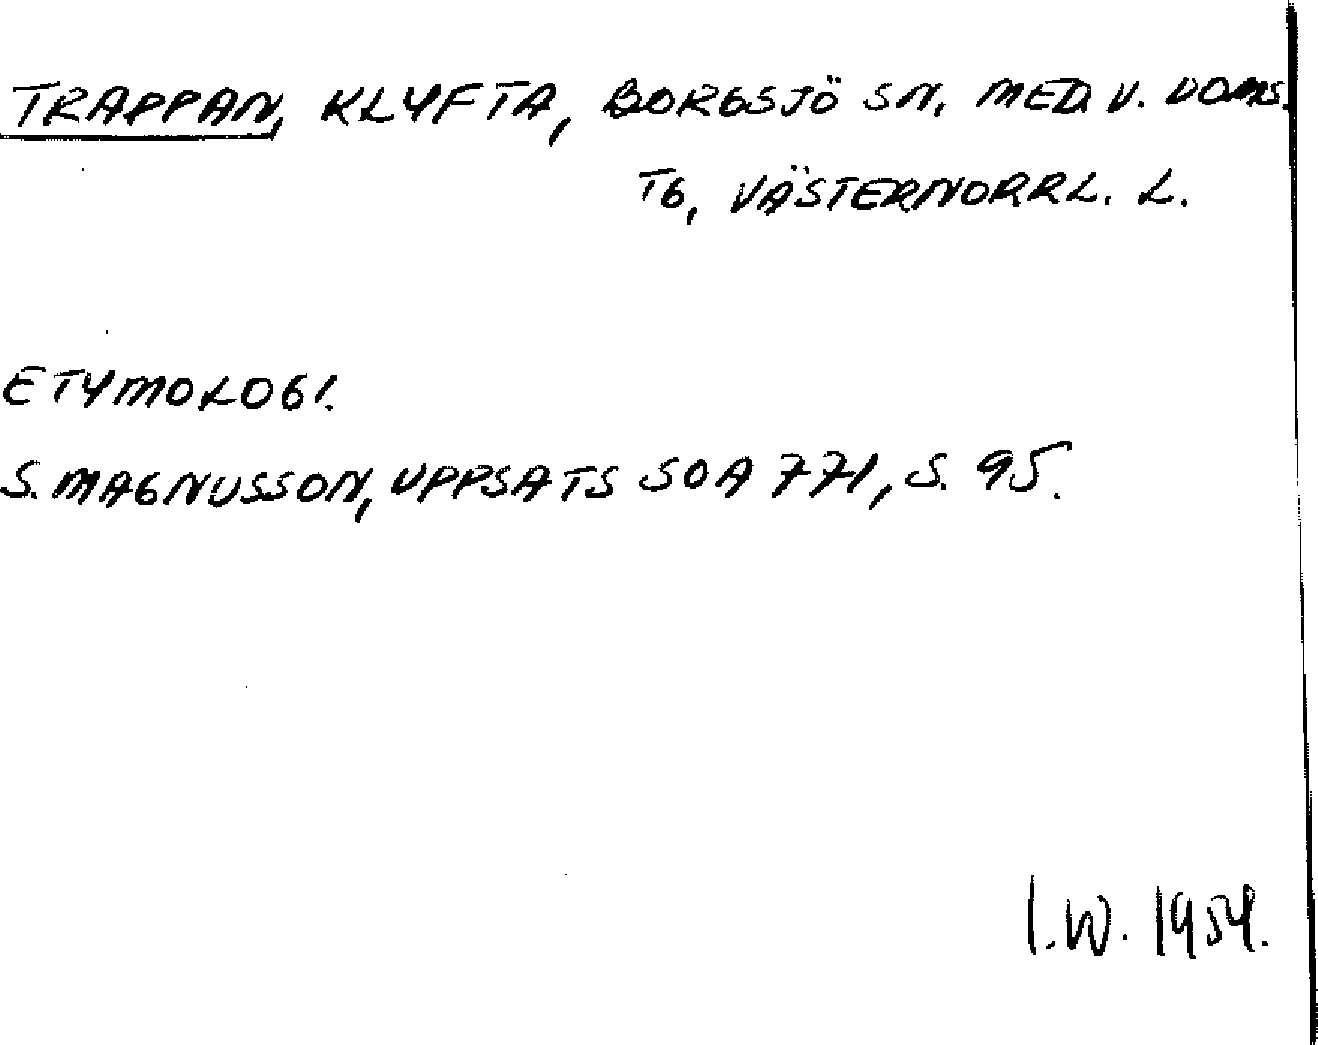 TRAPPAN, KLYFTA, BORGSJÖ SN, MED. V. DOMS.
TG, VÄSTERNORRL. L.
ETYMOLOGI.
S. MAGNUSSON, UPPSATS SOA 771, S. 95.
I.W. 1954.